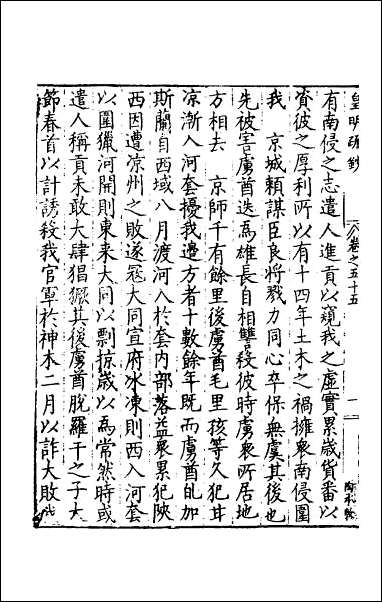 皇明疏鈔 卷之五十五 一
有南侵之志遣人進貢以窺我之虛實累歲貨番以
資彼之厚利所以有十四年土木之禍擁衆南侵圍
我　京城賴謀臣良將戮力同心卒保無虞其後也
先被害虜酋迭爲雄長自相讐殺彼時虜衆所居地
方相去　京師千有餘里後虜酋毛里孩等久犯甘
凉漸入河套擾我邊方者十數餘年旣而虜酋乩加
斯蘭自西域八月渡河入於套内部落益衆累犯陝
西因遭凉州之敗遂宼大同宣府氷凍則西入河套
以圍獵河開則東来大同以剽掠歲以爲常然時或
遣人稱貢未敢大肆猖獗其後虜酋脫羅干之子大
節春首以計誘殺我官軍於神木二月以詐大敗我